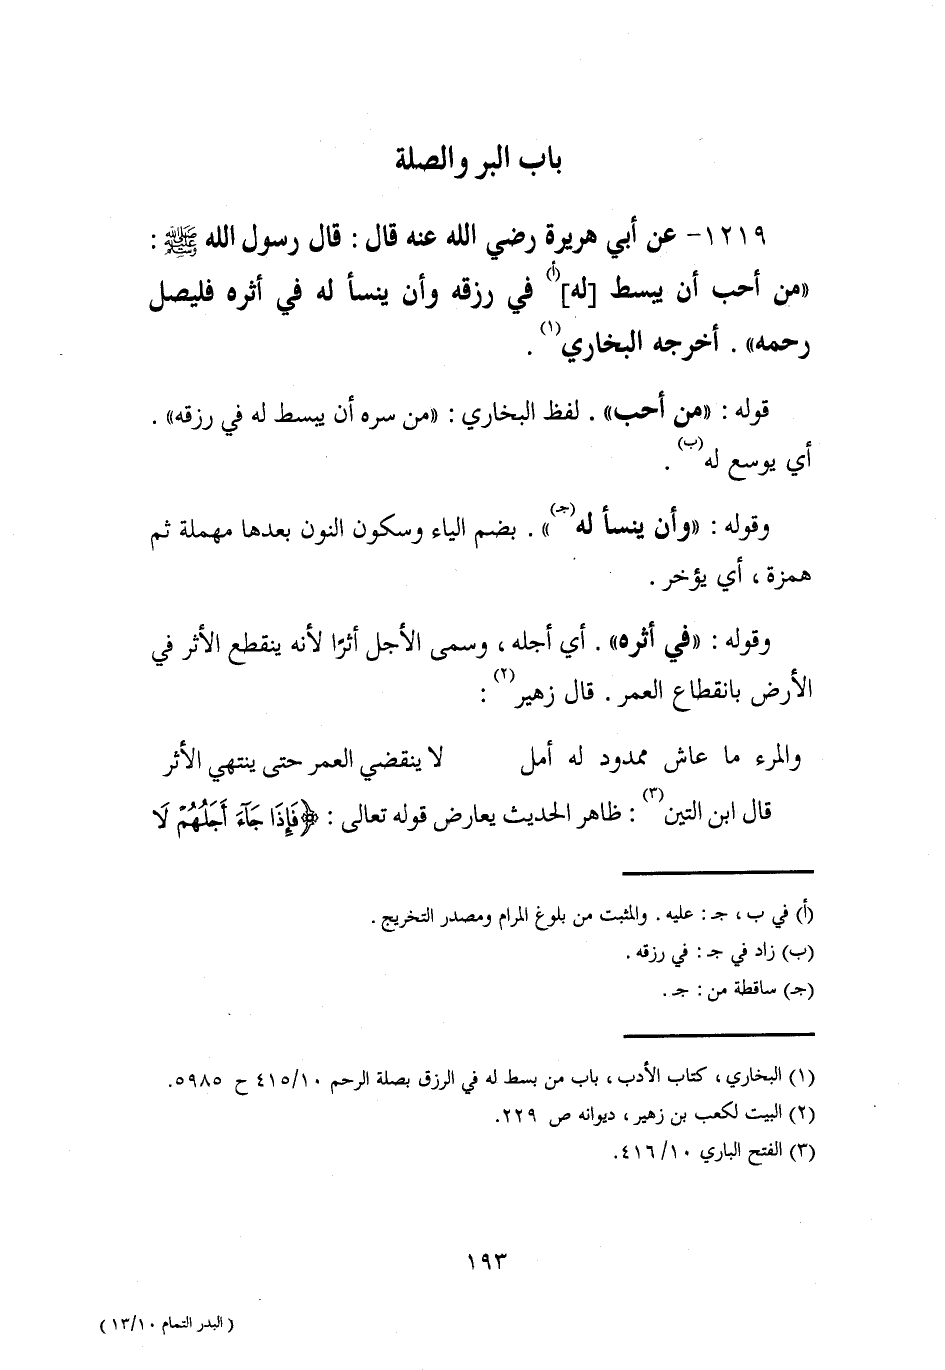 باب البر والصلة
١٢١٩- عن أبي هريرة رضي الله عنه قال : قال رسول الله ﷺ :
«من أحب أن يبسط [له](أ) في رزقه وأن ينسأ له في أثره فليصل
رحمه» . أخرجه البخاري(١) .
قوله : «من أحب» . لفظ البخاري : «من سره أن يبسط له في رزقه» .
أي يوسع له(ب) .
وقوله : «وأن ينسأ له(جـ)» . بضم الياء وسكون النون بعدها مهملة ثم
همزة ، أي يؤخر .
وقوله : «في أثره» . أي أجله ، وسمى الأجل أثرًا لأنه ينقطع الأثر في
الأرض بانقطاع العمر . قال زهير(٢) :
والمرء ما عاش ممدود له أمل لا ينقضي العمر حتى ينتهي الأثر
قال ابن التين(٣) : ظاهر الحديث يعارض قوله تعالى : ﴿فَإِذَا جَآءَ أَجَلُهُمْ لَا
(أ) في ب ، جـ : عليه . والمثبت من بلوغ المرام ومصدر التخريج .
(ب) زاد في جـ : في رزقه .
(جـ) ساقطة من : جـ .
(١) البخاري ، كتاب الأدب ، باب من بسط له في الرزق بصلة الرحم ٤١٥/١٠ ح ٥٩٨٥.
(٢) البيت لكعب بن زهير ، ديوانه ص ٢٢٩.
(٣) الفتح الباري ٤١٦/١٠.
١٩٣
( البدر التمام ١٣/١٠ )